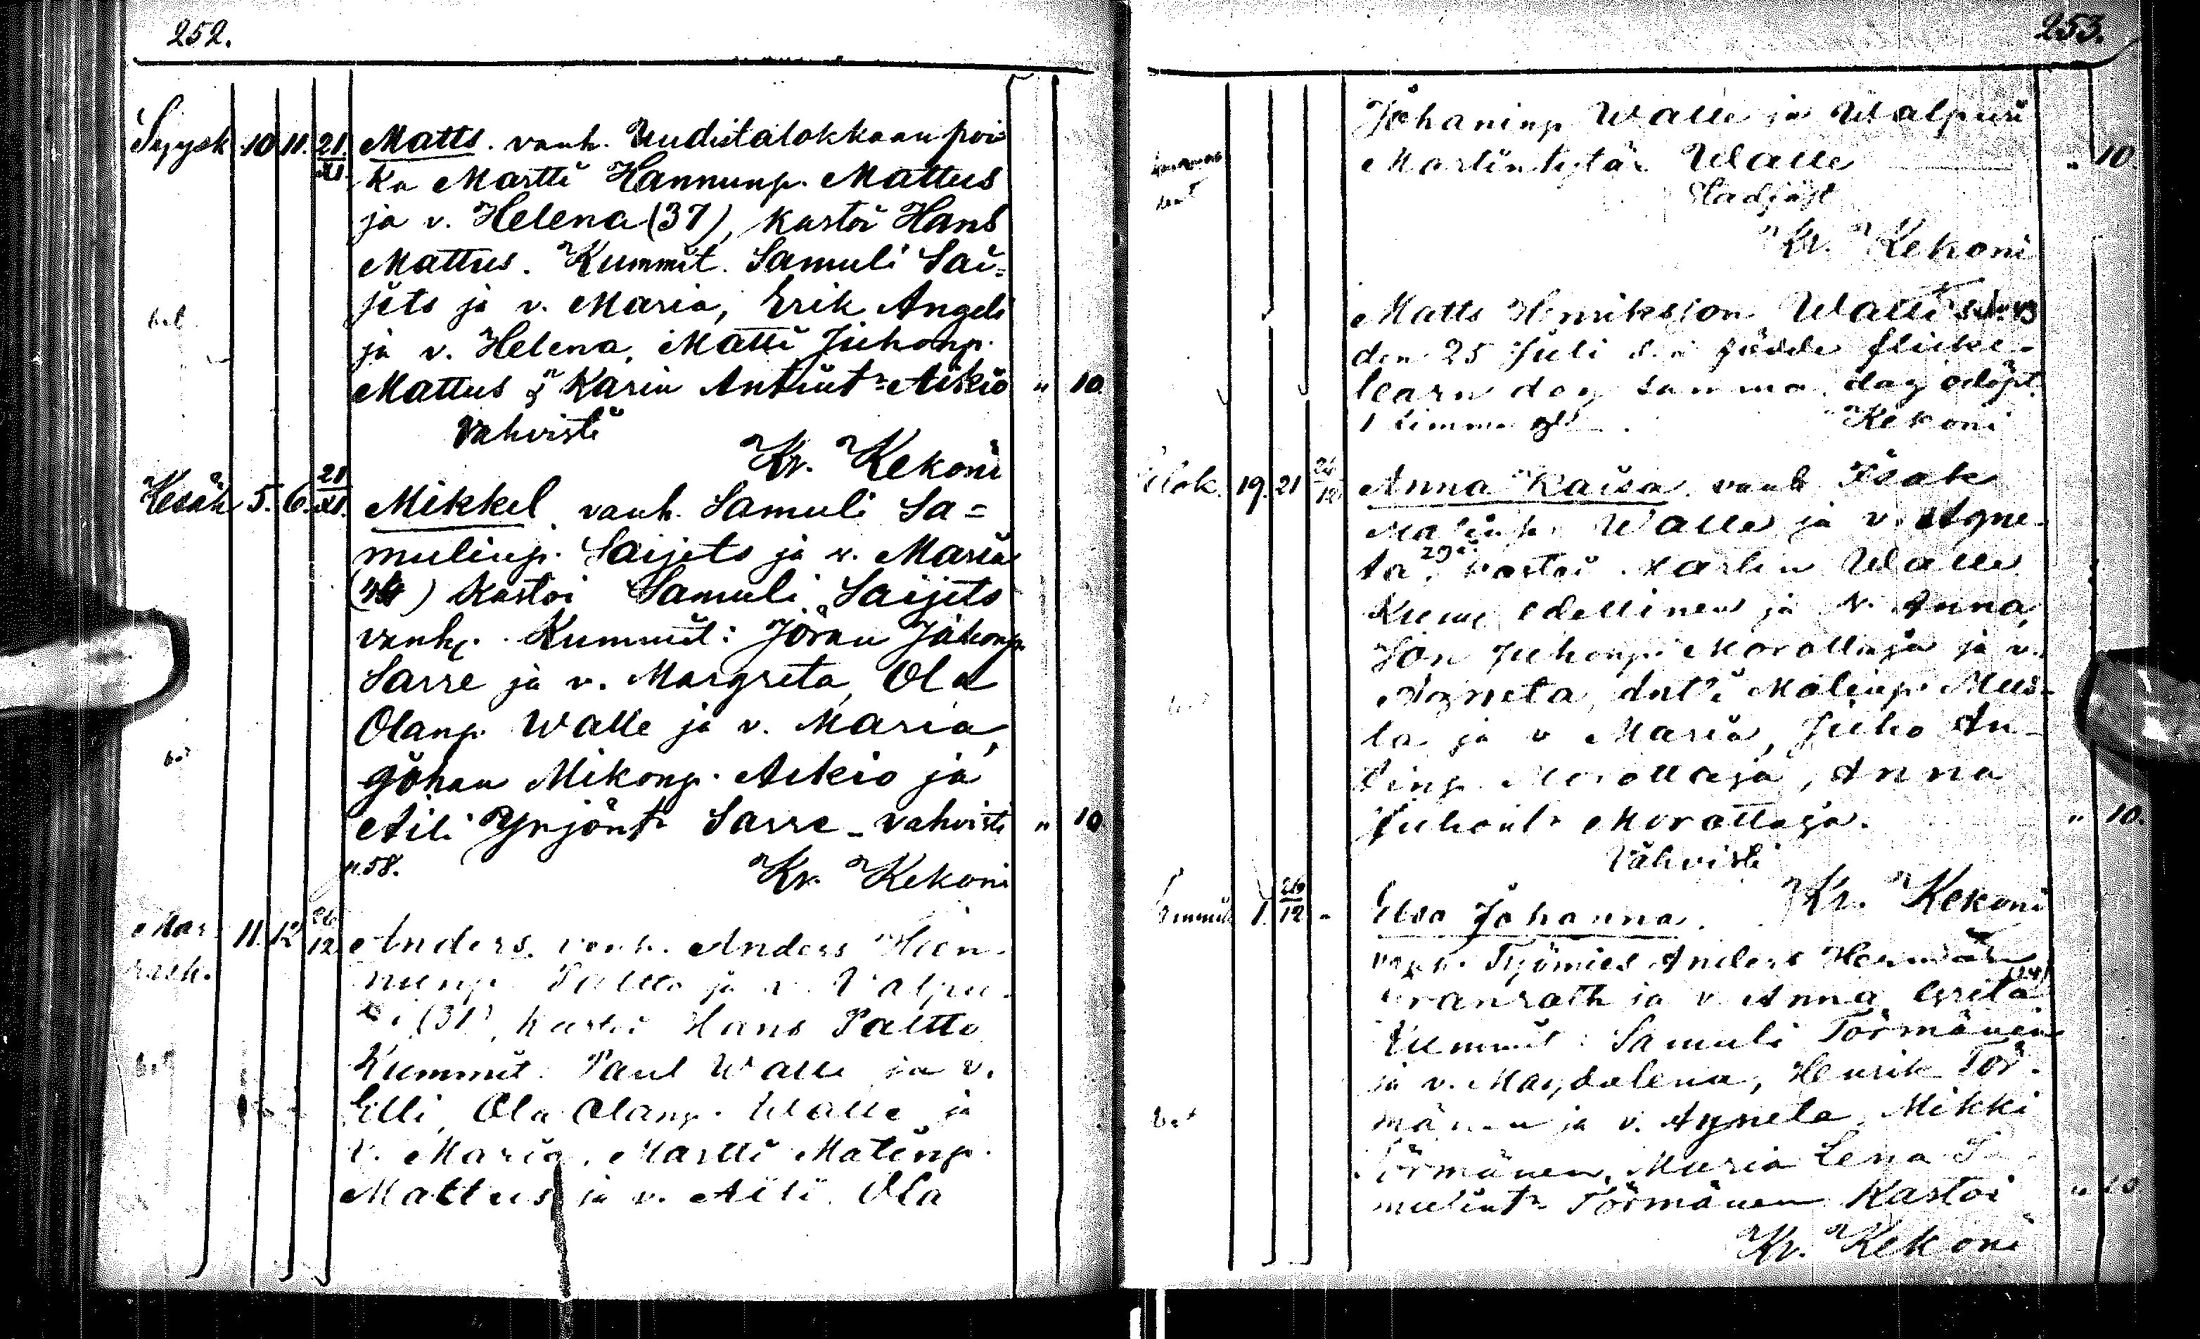 252.
Syysk. 10. 11. 21. XI. Matts. vanh. Uudistalokkaan poi
ka Martti Hannunp. Mattus
ja v. Helena (37), kastoi Hans
Mattus. Kummit. Samuli Sai=
jets ja v. Maria, Erik Angeli
ja v. Helena, Matti Juhonp.
Mattus & Karin Antint:r Aikio „ 10.
vahvisti
Kr. Kekoni
Kesäk. 5. 6. 21 XI. Mikkel, vanh. Samuli Sa=
mulinp. Saijets ja v. Maria
kastoi Samuli Saijets
vanh. Kummit: Jöran Johanp.
Sarre ja v. Margreta, Ola
Olanp. Walle ja v. Maria,
Johan Mikonp. Aikio ja
Aili Yrjönt:r Sarre – vahvisti „ 10
n. 58.
Kr. Kekoni
Mar- 11. 12 26 12. Anders. vanh. Anders Hen-
rask.
nunp. Paltto ja v. Valpu-
ri (31), kastoi Hans Paltto
Kummit. Paul Walle ja v.
Elli, Ola Olanp. Walle ja
v. Maria, Martti Matinp.
Mattus ja v. Aili. Ola
253.
Johaninp. Walle ja Walpuri
Martintytär Walle „ 10.
Kr. Kekoni
Matts Henriksson Walles
den 25 Juli d. å. födde flicke-
barn dog samma dag odöpt.
1 timme gl.
Kekoni
Elok. 19. 21 26 12 Anna Kaisa. vanh. Isak
Matinp. Walle ja v. Agne-
ta, 29 kastoi Martin Walle
Kumm. edellinen ja v. Anna,
Jon Juhonp. Morottaja ja v.
Agneta, Antti Matinp. Mus-
ta ja v. Maria, Juho An-
tinp. Morottaja, Anna
Juhont:r Morottaja. „ 10.
Vahvisti
Kr. Kekoni
1. 26 12 – Elsa Johanna.
vanh. Työmies Anders Herman
ja v. Anna Grita
Kummit: Samuli Törmänen
ja v. Magdalena, Henrik Tör-
mänen ja v. Agneta, Mikki
Törmänen, Maria Lena Sa-
mulint:r Törmänen Kastoi „ 10
Kr. Kekoni